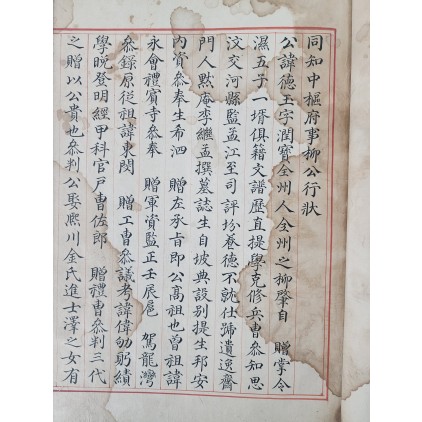 同知中樞府事柳公行狀
公諱德玉字潤寶全州人全州之柳肇自 贈掌令
濕五子一壻俱籍文譜歷直提學克修兵曹參知思
汶交河縣監孟江至司評坋養德不就仕號遺逸齋
門人默庵李繼孟撰墓誌生自坡典設別提生邦安
內資參奉生希泗 贈左承旨即公高祖也曾祖諱
永會禮賓寺參奉 贈軍資監正壬辰扈 駕龍灣
參錄原從祖諱東閔 贈工曹參議考諱偉劬躬績
學晚登明經甲科官戶曹佐郎 贈禮曹參判三代
之贈以公貴也參判公娶熙川金氏進士澤之女有